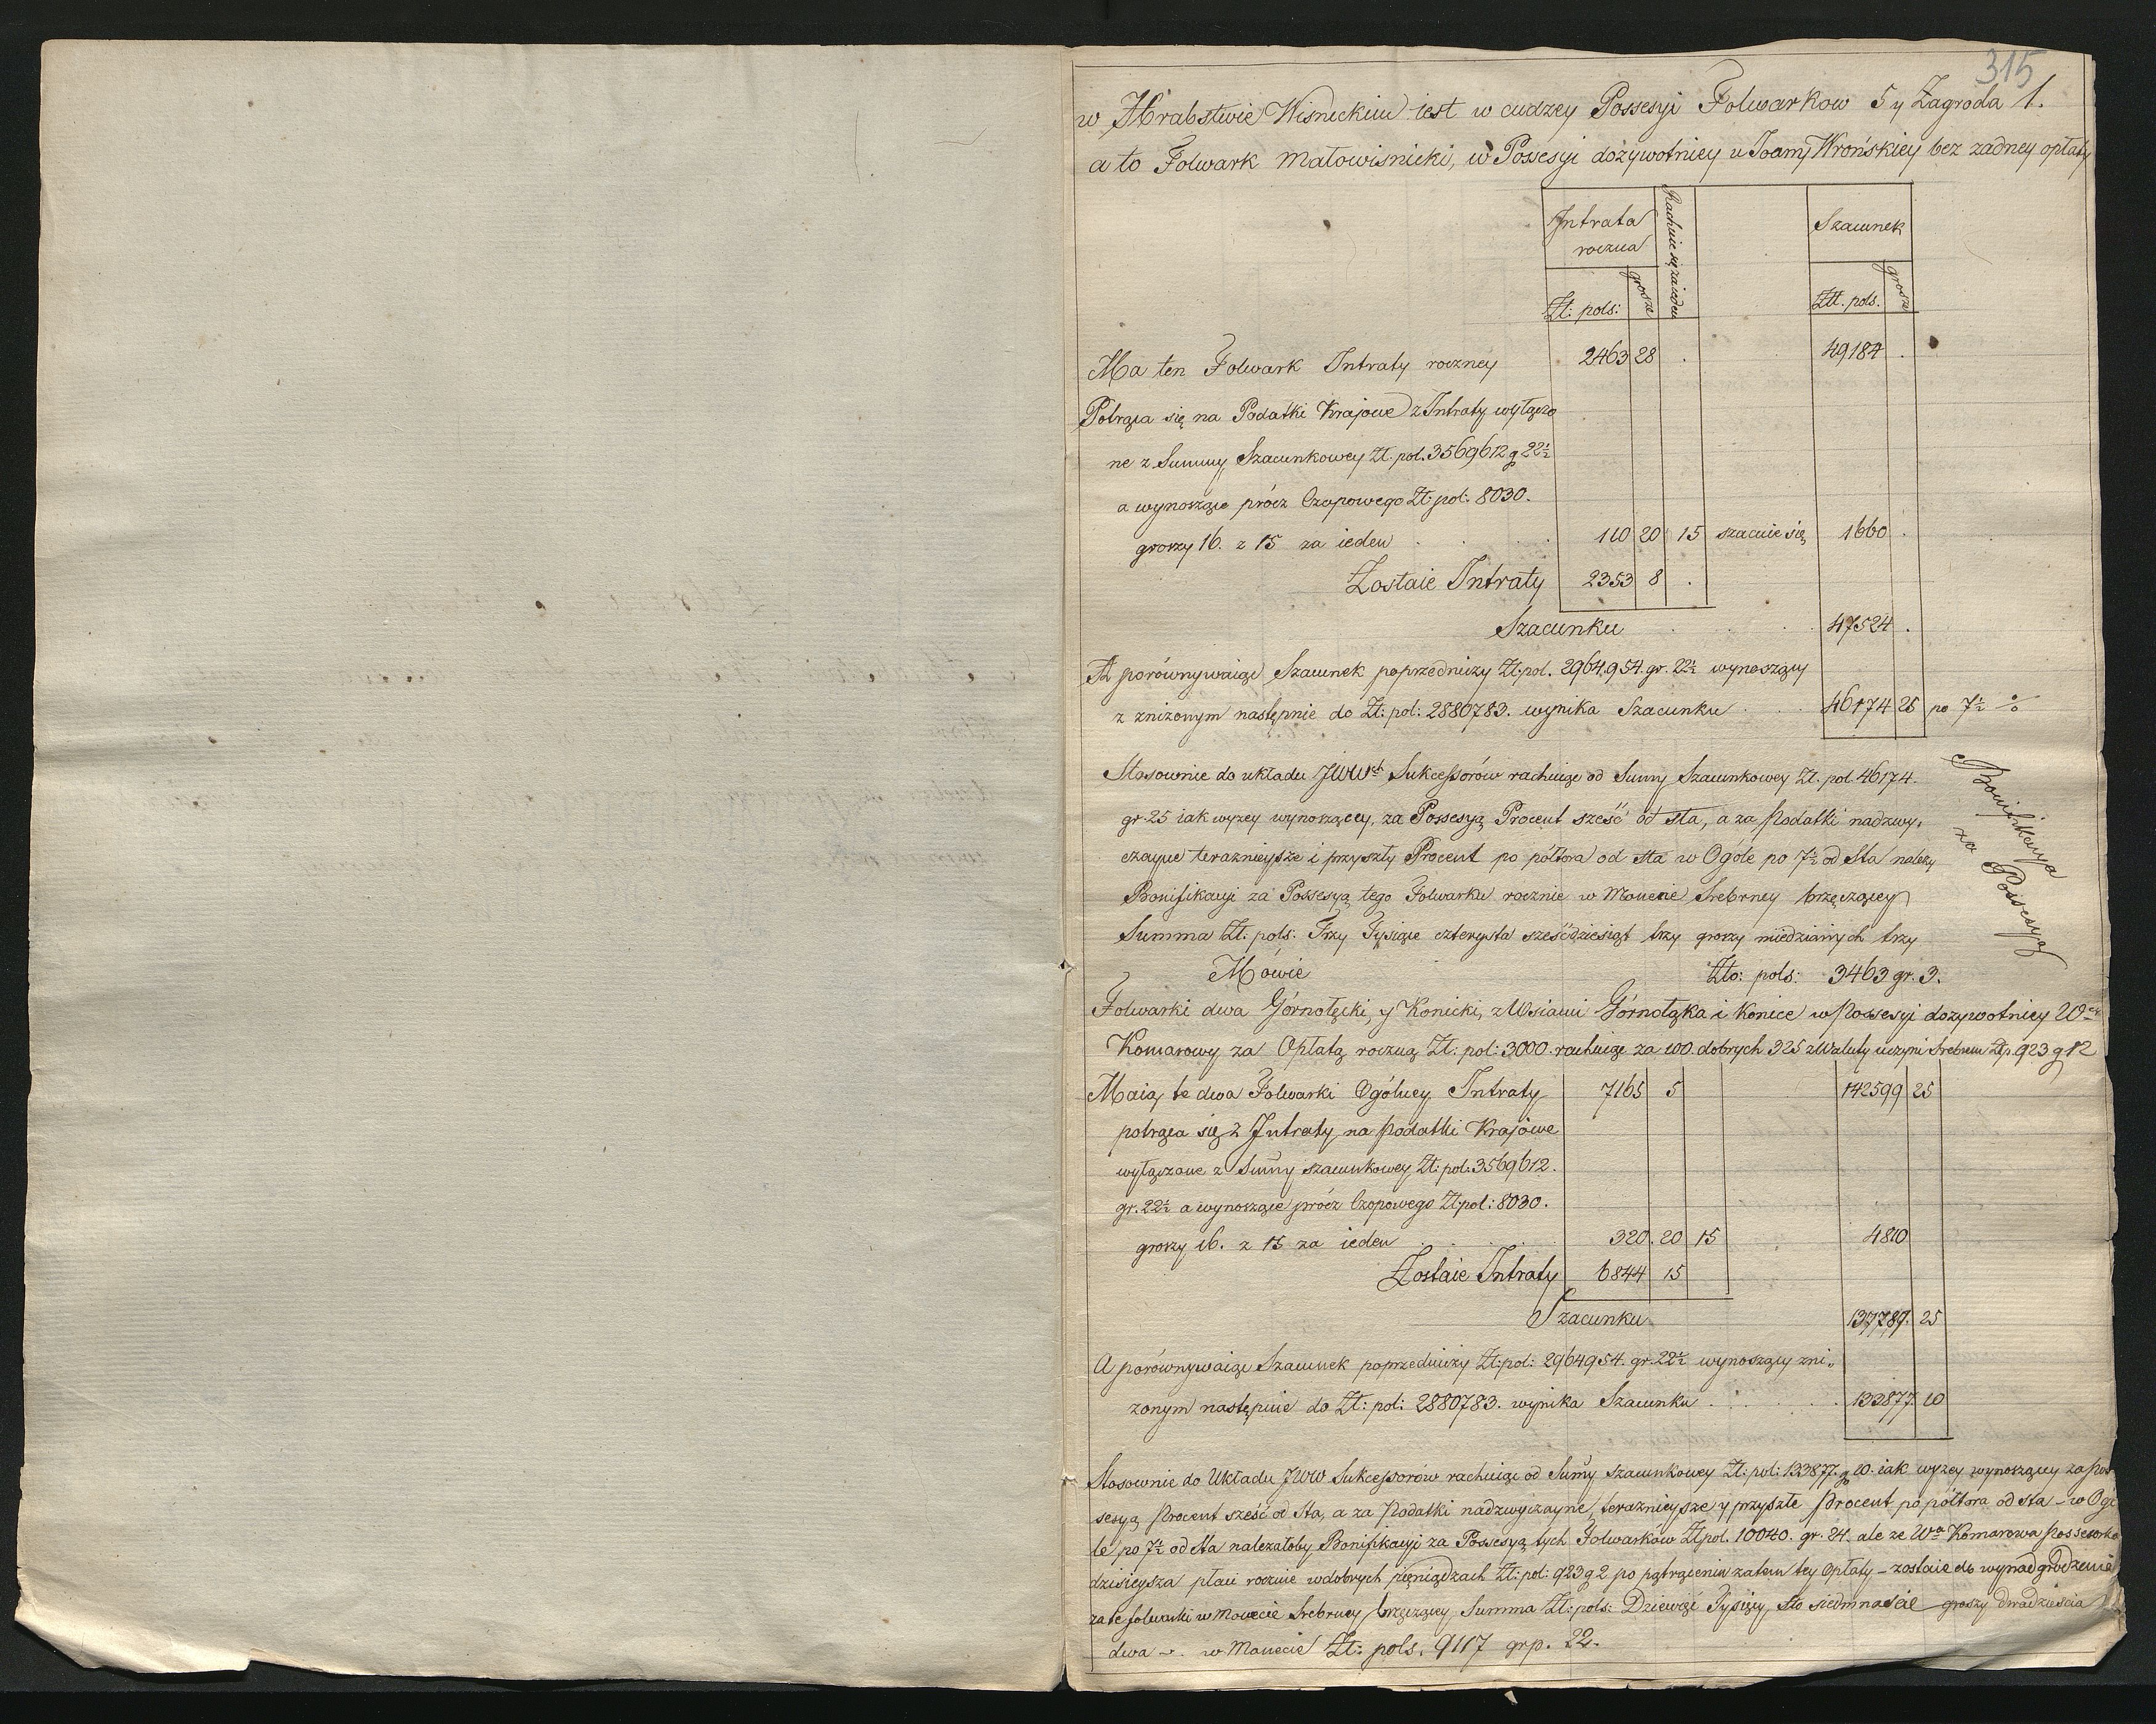 315
w Hrabstwie Wisnickim iest w cudzey Possesyi Folwarkow 5 y Zagroda 1.
a to Folwark Małowisnicki, w Possesyi dożywotniey u Joanny Krońskiey bez zadney opłaty
Intrata roczna
Rachuie się za ieden
Szacunek
Zł: pols: grosze
Złł. pols. grosze
Ma ten Folwark Intraty roczney 2463 28 . 49184 .
Potrąca się na Podatki Krajowe z Intraty wyłączo
ne z Summy Szacunkowey Zł. pol. 3569612 g 22½
a wynoszące prócz Czopowego Zł: pol: 8030.
groszy 16. z 15 za ieden . . . . 110 20 15 szacuie się 1660 .
Zostaie Intraty 2353 8 .
Szacunku . . . 47524 .
A porównywaiąc Szacunek poprzedniczy Zł: pol. 2964,954. gr. 22½ wynoszący
z zniżonym następnie do Zł: pol: 2880783. wynika Szacunku . . . 46174 25 po 7½ %
Stosownie do układu JWWch Sukcessorów rachuiąc od Sumy Szacunkowey Zł. pol. 46174.
gr. 25 iak wyzey wynoszącey, za Possesyą Procent sześć od sta, a za Podatki nadzwy,
czayne teraznieysze i przyszły Procent po półtora od sta w Ogóle po 7½ od Sta należy
Bonifikacyi za Possesyą tego Folwarku rocznie w Monecie Srebrney brzęczącey
Summa Zł: pols: Trzy Tysiące czterysta sześćdziesiąt trzy groszy miedzianych trzy
Mówie Zło: pols: 3463 gr. 3.
Bonifikacya za Possesyą
Folwarki dwa Górnołęcki, y Konicki, z Wsiami Górnołąka i Konice w Possesyi dozywotniey Wney
Komarowy za Opłatą roczną Zł: pol: 3000. rachuiąc za 100. dobrych 325 z Waluty uczyni Srebrem Złp. 923 g 12
Maią te dwa Folwarki Ogólney Intraty 7165 5 142599 25
potrąca się z Intraty na Podatki Krajowe
wyłączone z Sumy szacunkowey Zł: pol: 3569612.
gr. 22½ a wynoszące prócz Czopowego Zł pol: 8030.
groszy 16. z 15 za ieden . . . . 320. 20 15 4810
Zostaie Intraty 6844 15
Szacunku 137789. 25
A porównywaiąc Szacunek poprzedniczy Zł: pol: 2964954. gr. 22½ wynoszący zni„
zonym następnie do Zł: pol: 2880783. wynika Szacunku . . . . 133877. 10
Stosownie do Układu JWW Sukcessorów rachuiąc od Sumy szacunkowey Zł: pol: 133877. g 10. iak wyzey wynoszącey za Pos
sesyą Procent sześć od Sta, a za Podatki nadzwyczayne, teraznieysze y przyszłe Procent po półtora od sta – w Ogó
le po 7½ od Sta nalezałoby Bonifikacyi za Possesyą tych Folwarków Zł pol. 10040. gr. 24. ale ze Wa Komarowa Possesorka
dzisieysza płaci rocznie w dobrych pieniądzach Zł: pol: 923 g 2 po potrąceniu zatem tey Opłaty – zostaie do wynadgrodzenia
za te folwarki w Monecie Srebrney brzęczącey Summa Zł: pols: Dziewięć Tysięcy, sto siedmnaście groszy dwadzieścia
dwa –. w Monecie Zł: pols. 9117 grp. 22.